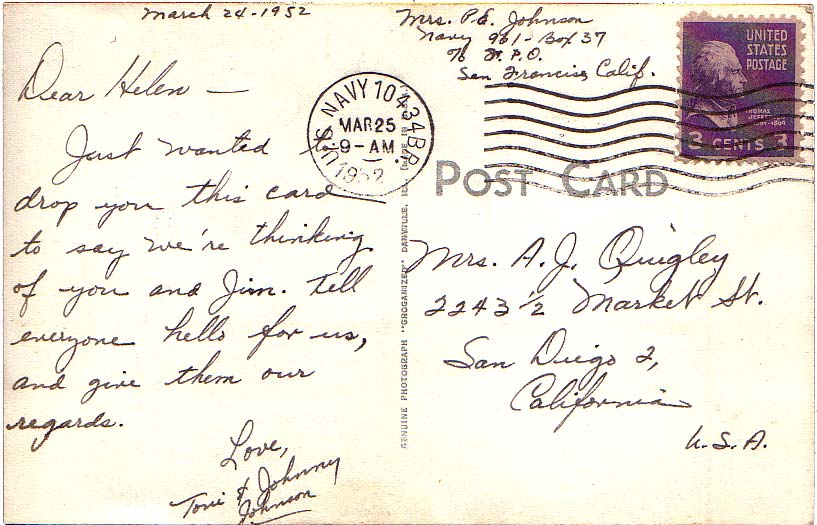 March 24-1952
Dear Helen —
Just wanted to
drop you this card
to say we're thinking
of you and Jim. tell
everyone hello for us,
and give them our
regards.
Love,
Toni & Johnny
Johnson
Mrs. P.E. Johnson
Navy 961 - Box 37
% F.P.O.
San Francisco, Calif.
U.S. NAVY 10434 BR.
MAR 25
9-AM
1952
UNITED
STATES
POSTAGE
THOMAS
3 CENTS 3
POST CARD
GENUINE PHOTOGRAPH "GROGANIZED" DANVILLE, ILL.
Mrs. A.J. Quigley
2243 1/2 Market St.
San Diego 2,
California
U.S.A.